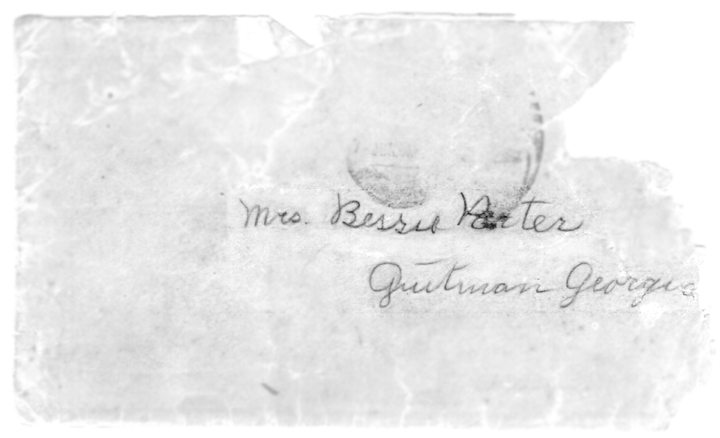 Mrs. Bessie Porter
Quitman Georgia